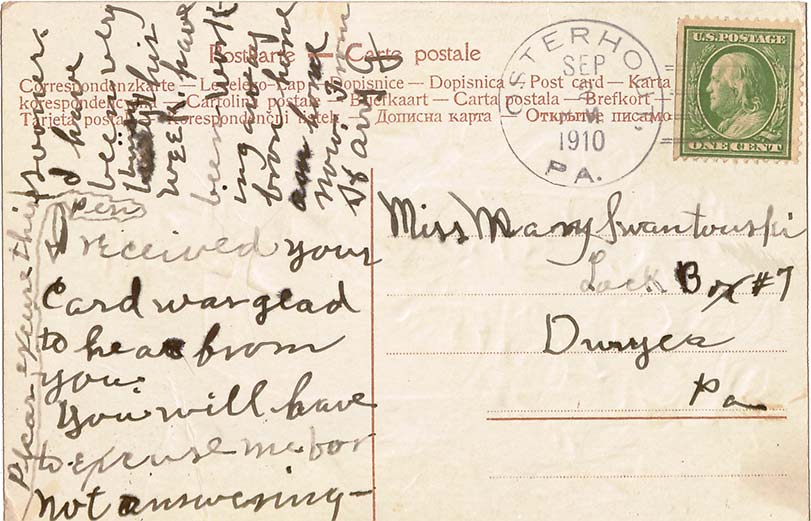 Postcarte — Carte postale
Correspondenzkarte — Levelezo-Lap — Dopisnice — Dopisnica — Post card — Karta
korespondenc — Cartolina postale — Briefkaart — Carta postala — Brefkort
Tarjeta postal — Korespondenčni listek — Дописна карта — Открытие писмо
OSTERHO
SEP
M
1910
PA.
U.S. POSTAGE
ONE CENT
I received your
Card was glad
to hear from
you.
You will have
to excuse me for
not answering—
sooner.
I have
been very
this
week have
been work-
ing away
from home
am home
now. From
Please excuse this
pen
Miss Mary Swantouski
Lock Box #7
Pa